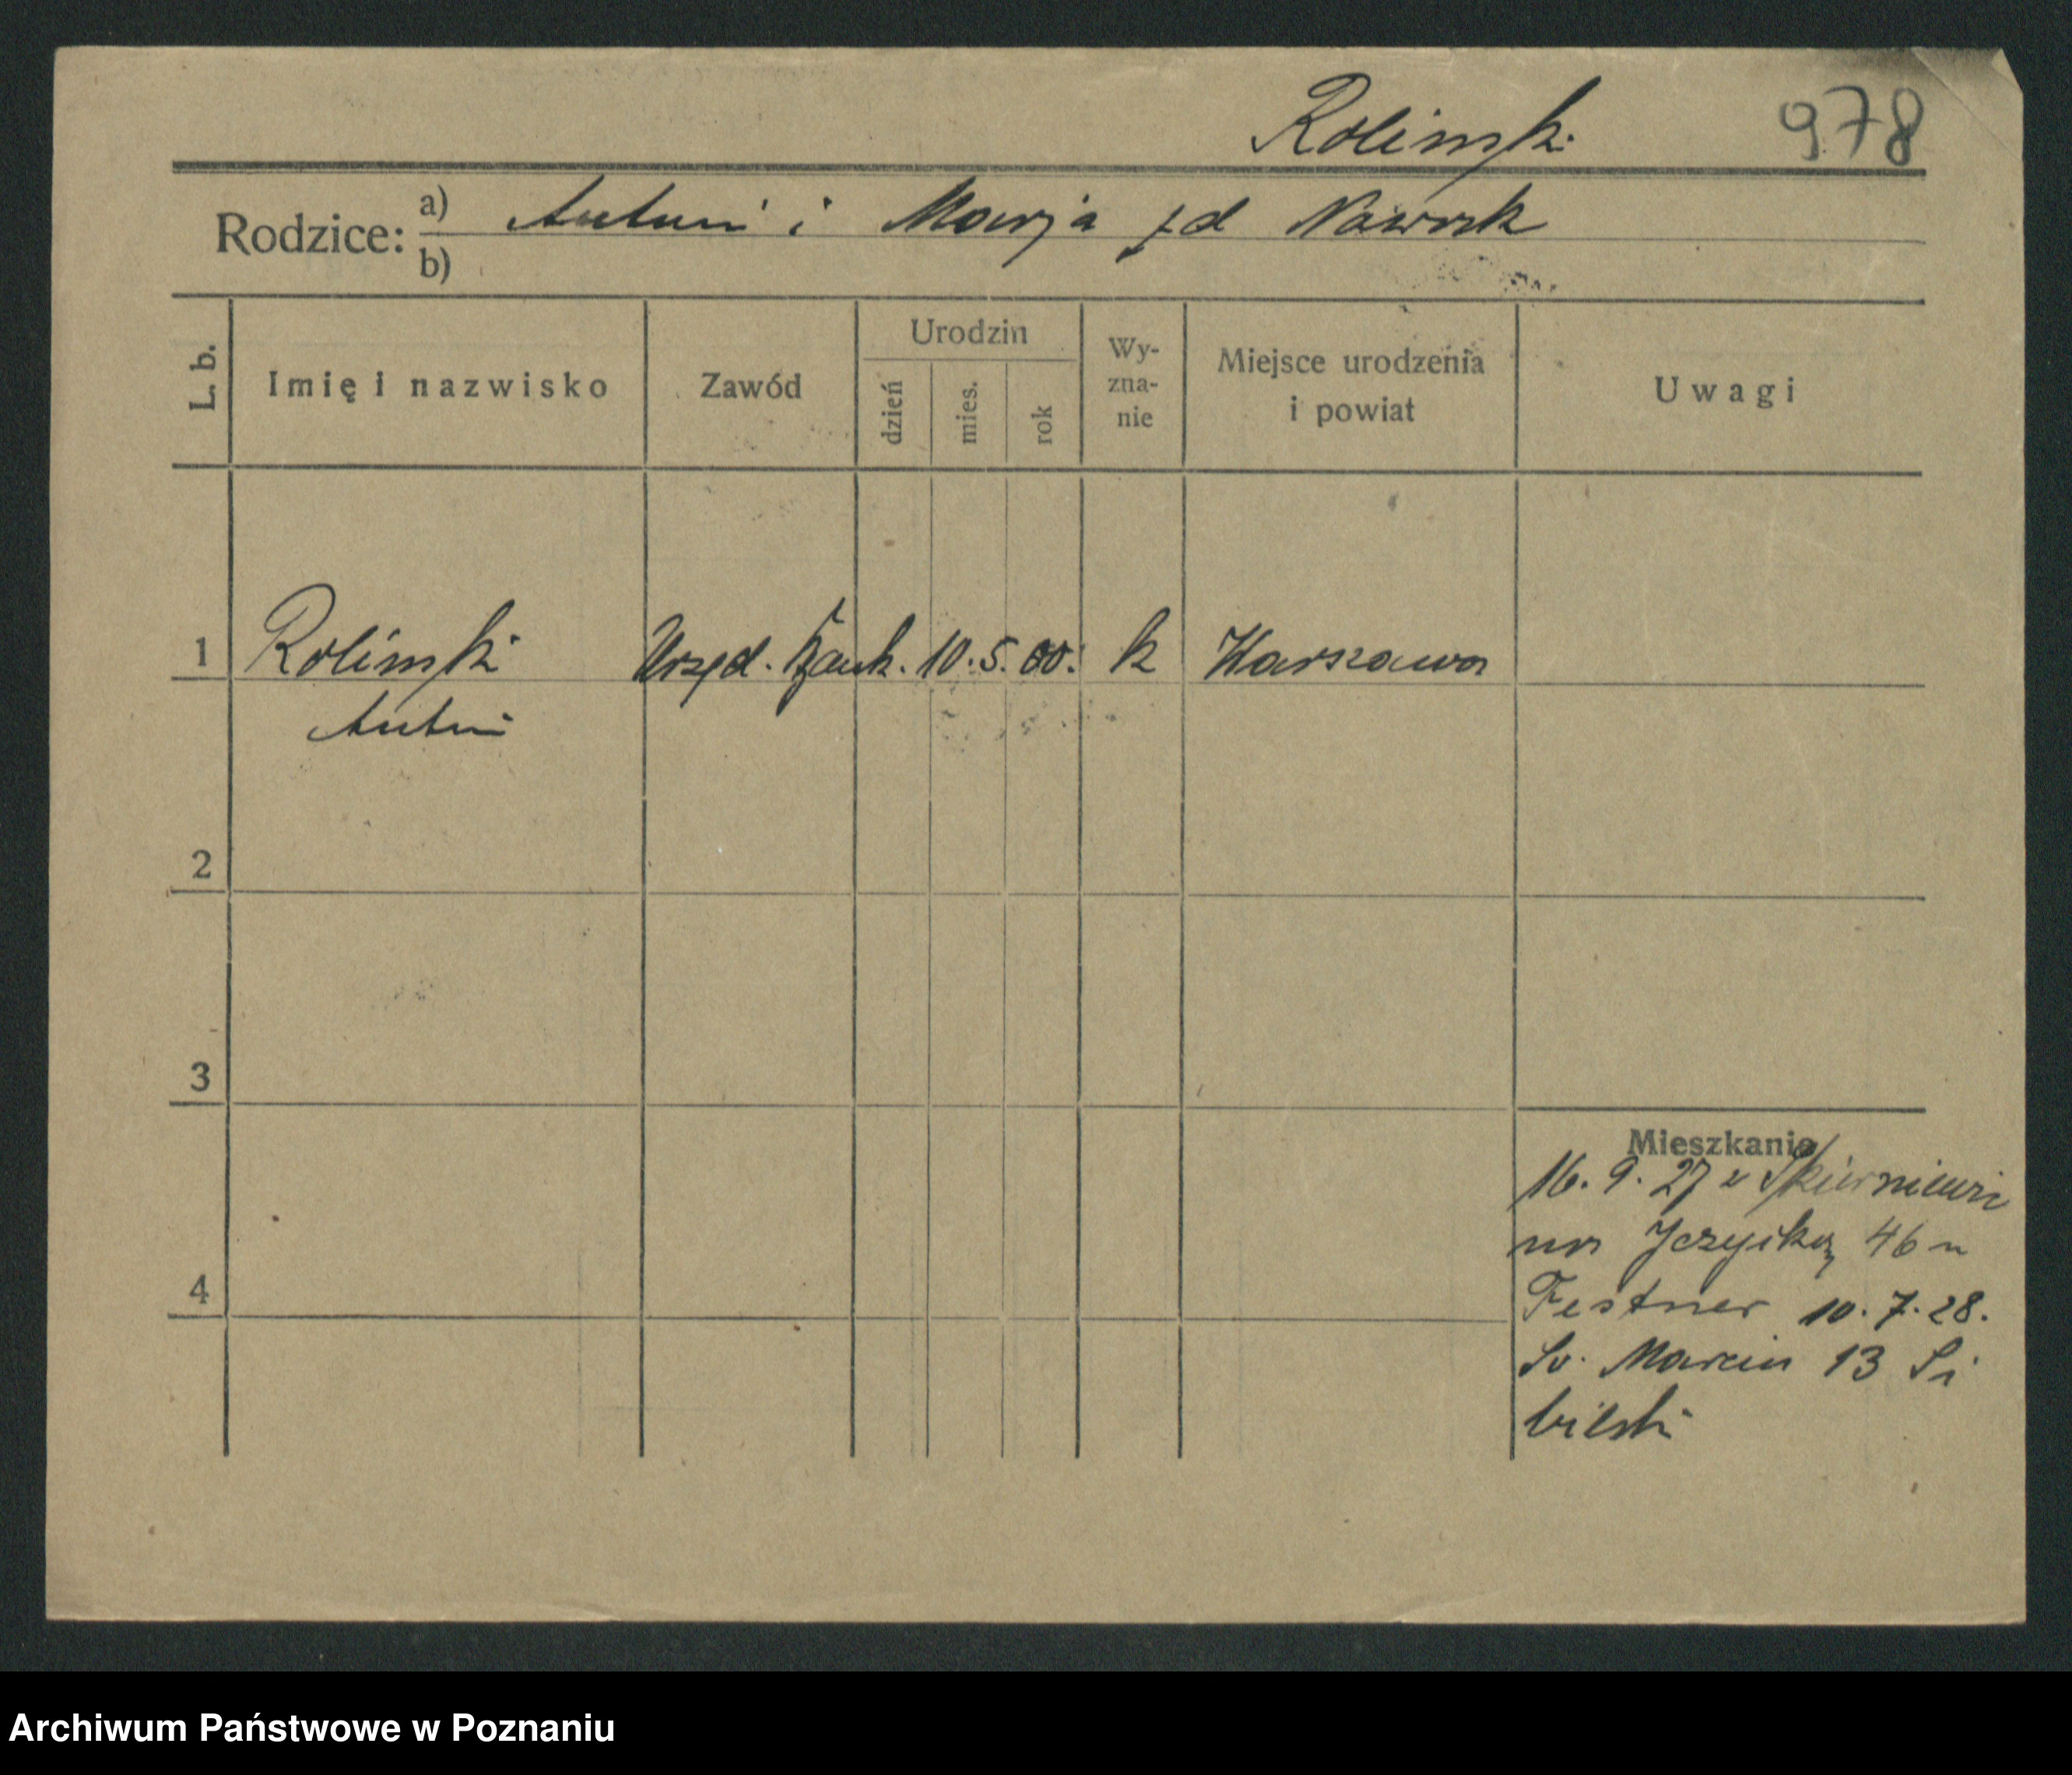 Rolinski
978
Rodzice: a) Antoni i Marja zd Nawrok
b)
L. b. Imię i nazwisko Zawód Urodzin dzień mies. rok Wy-zna-nie Miejsce urodzenia i powiat Uwagi
1 Rolinski Urzęd. bank. 10. 5. 00. k Warszawa
Antoni
2
3
Mieszkania
16. 9. 27 z Skierniewic
4
46
Festner 10. 7. 28.
Sv. Marcin 13 Si
bilski
Archiwum Państwowe w Poznaniu